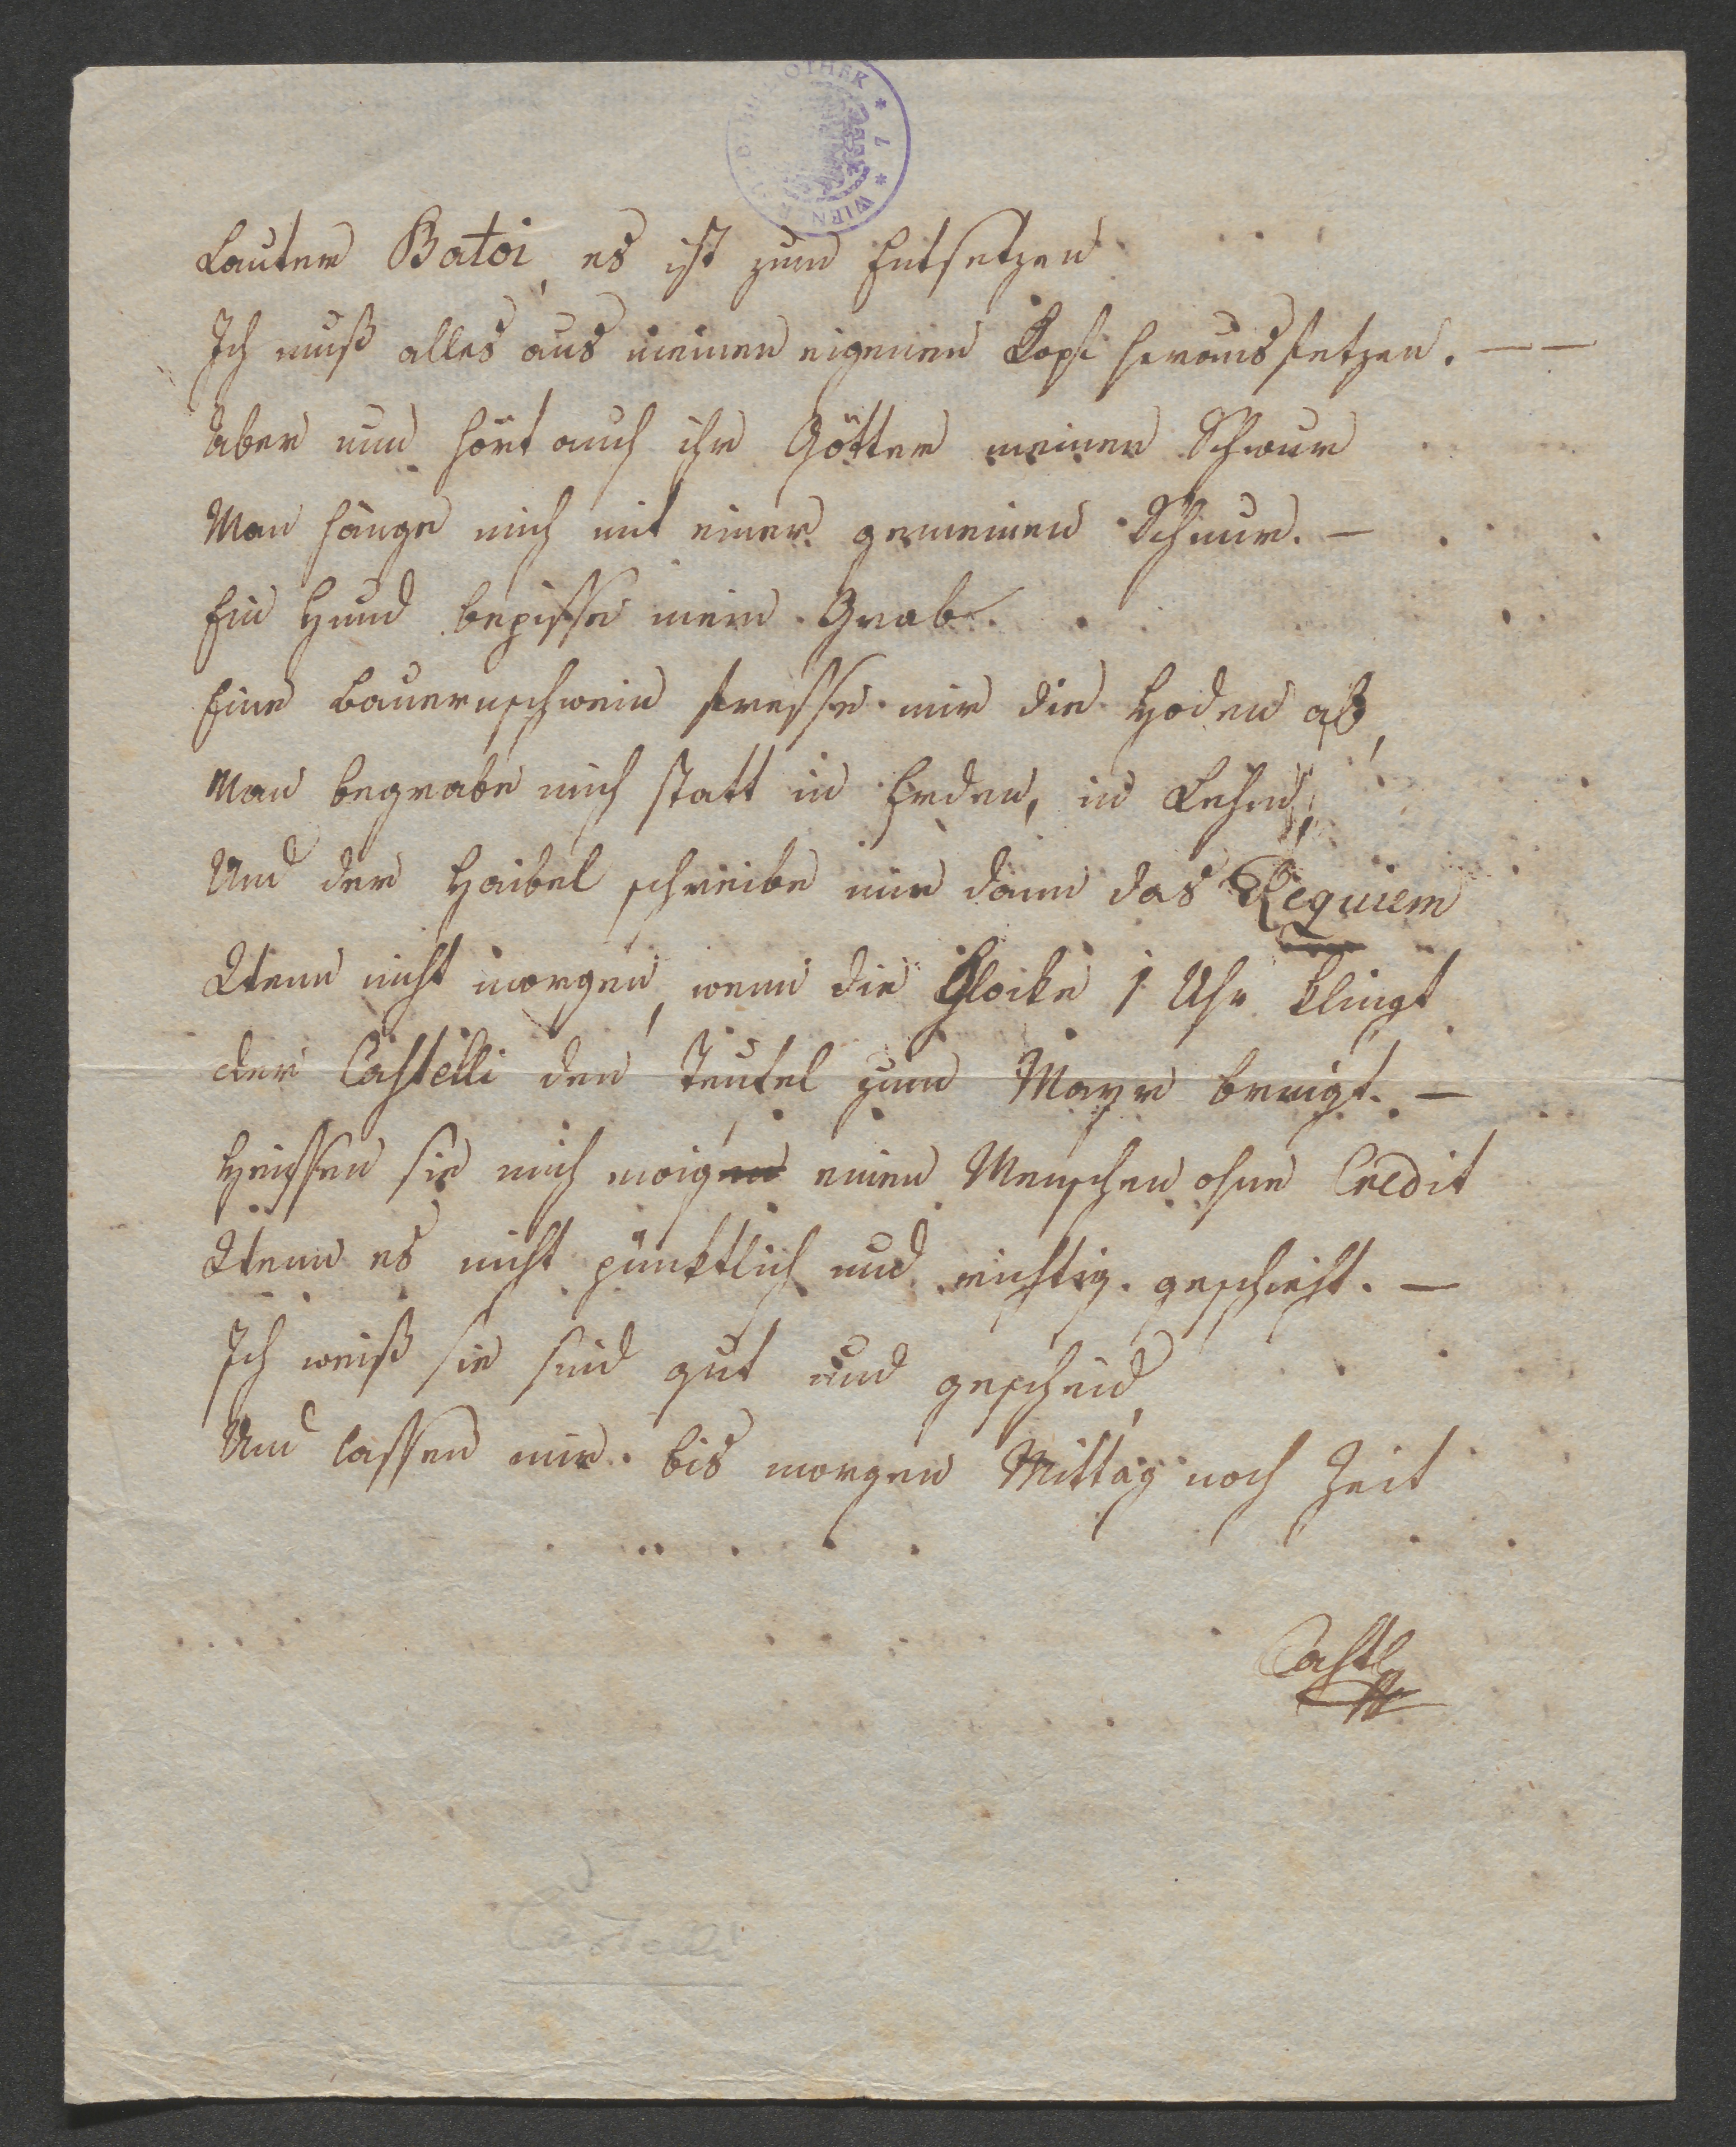 WIENER STADTBIBLIOTHEK * 7 *
Lauter Batoi, es ist zum Entsetzen
Ich muß alles aus meinen eigenen Kopf heraussetzen. — —
Aber nun hört auch ihr Götter meinen Schwur
Man hänge mich mit einer gemeinen Schnur. —
Ein Hund bepisse mein Grab
Eine Bauernschwein fresse mir die Hoden ab,
Man begrabe mich statt in Erden, in Lehm,
Und der Haibel schreibe mir dann das Requiem
Wenn nicht morgen, wenn die Glocke 1 Uhr klingt
der Castelli den Teufel zum Mayr bringt. —
Heissen sie mich einen Menschen ohne Credit
Wenn es nicht pünktlich und richtig geschieht. —
Ich weiß sie sind gut und gescheid,
Und lassen mir bis morgen Mittag noch Zeit
Castelli